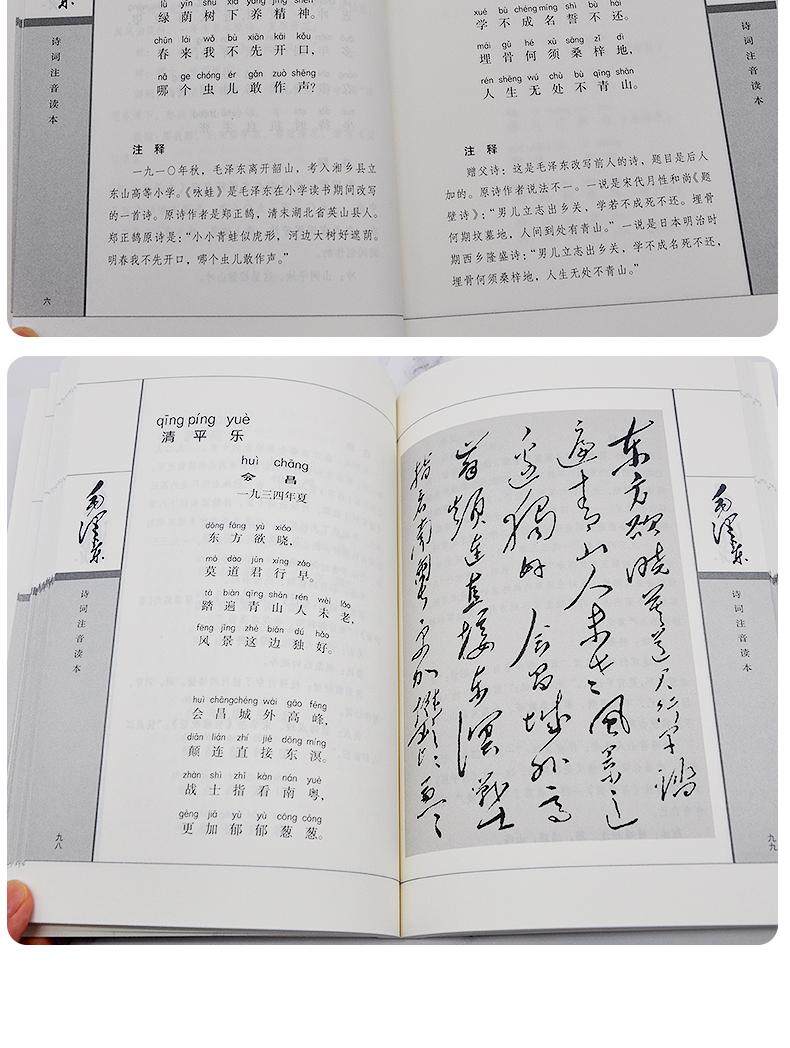 毛泽东
诗词注音读本
六
lǜ yīn shù xià yǎng jīng shén
绿荫树下养精神。
chūn lái wǒ bù xiān kāi kǒu
春来我不先开口，
nǎ ge chóng ér gǎn zuò shēng
哪个虫儿敢作声？
注释
一九一〇年秋，毛泽东离开韶山，考入湘乡县立
东山高等小学。《咏蛙》是毛泽东在小学读书期间改写
的一首诗。原诗作者是郑正鹄，清末湖北省英山县人。
郑正鹄原诗是：“小小青蛙似虎形，河边大树好遮荫。
明春我不先开口，哪个虫儿敢作声。”
xué bù chéng míng shì bù hái
学不成名誓不还。
mái gǔ hé xū sāng zǐ dì
埋骨何须桑梓地，
rén shēng wú chù bù qīng shān
人生无处不青山。
注释
赠父诗：这是毛泽东改写前人的诗，题目是后人
加的。原诗作者说法不一。一说是宋代月性和尚《题
壁诗》：“男儿立志出乡关，学若不成死不还。埋骨
何期坟墓地，人间到处有青山。”一说是日本明治时
期西乡隆盛诗：“男儿立志出乡关，学不成名死不还，
埋骨何须桑梓地，人生无处不青山。”
诗词注音读本
毛泽东
诗词注音读本
九八
qīng píng yuè
清平乐
huì chāng
会昌
一九三四年夏
dōng fāng yù xiǎo
东方欲晓，
mò dào jūn xíng zǎo
莫道君行早。
tà biàn qīng shān rén wèi lǎo
踏遍青山人未老，
fēng jǐng zhè biān dú hǎo
风景这边独好。
huì chāng chéng wài gāo fēng
会昌城外高峰，
diān lián zhí jiē dōng míng
颠连直接东溟。
zhàn shì zhǐ kàn nán yuè
战士指看南粤，
gèng jiā yù yù cōng cōng
更加郁郁葱葱。
东方欲晓莫道君行早踏
遍青山人未老风景这
边独好会昌城外高
峰颠连直接东溟战士
指看南粤更加郁郁葱葱
毛泽东
诗词注音读本
九九